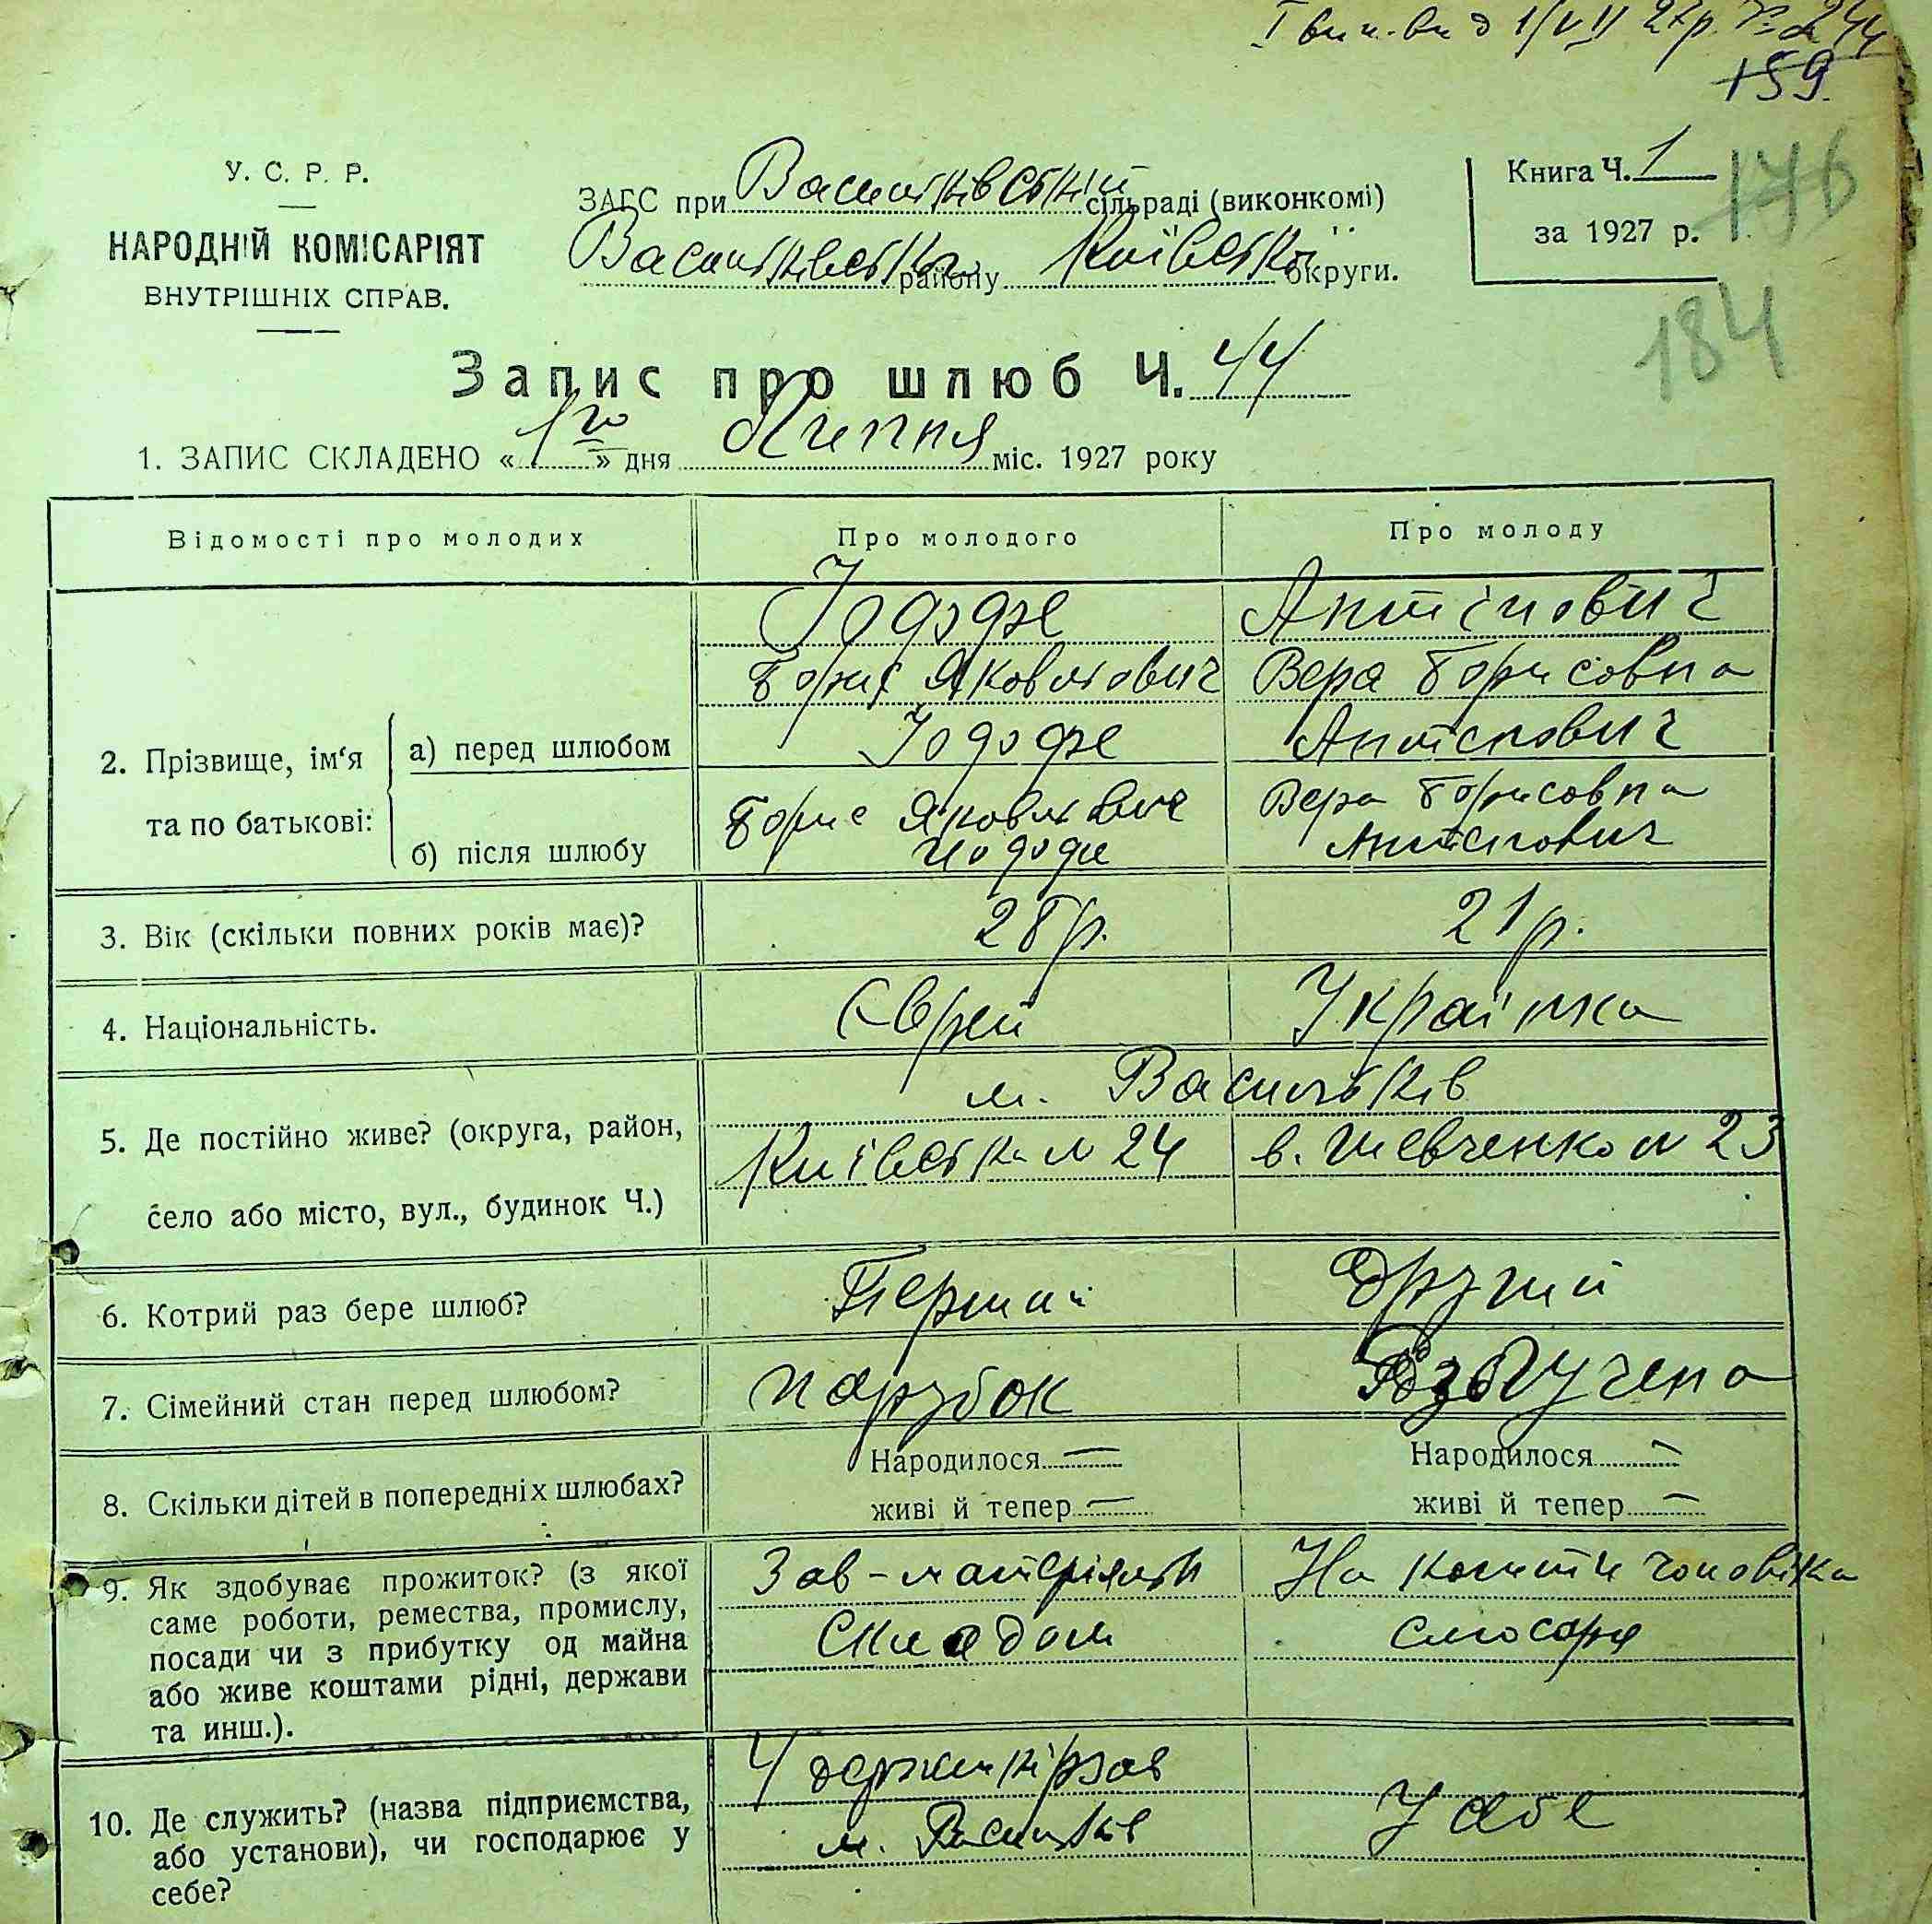 І вип. вид 1/VII 27р. № 244
159.
176
184
У. С. Р. Р.
НАРОДНІЙ КОМІСАРІЯТ
ВНУТРІШНІХ СПРАВ.
ЗАГС при Васильківській сільраді (виконкомі)
Васильківськ. району Київської округи.
Книга Ч. 1
за 1927 р.
Запис про шлюб Ч. 44
1. ЗАПИС СКЛАДЕНО «1го» дня Липня міс. 1927 року
Відомості про молодих Про молодого Про молоду
2. Прізвище, ім'я та по батькові:
а) перед шлюбом
б) після шлюбу
Антіпович
Борис Яковлович Вера Борисовна
Антіпович
Борис Яковлевич Вера Борисовна
Антіпович
3. Вік (скільки повних років має)? 28р. 21р.
4. Національність. Єврей Українка
5. Де постійно живе? (округа, район,
село або місто, вул., будинок Ч.)
м. Васильків
Київська № 24 в. Шевченко № 23
6. Котрий раз бере шлюб? Перший Другий
7. Сімейний стан перед шлюбом? парубок Розлучена
8. Скільки дітей в попередніх шлюбах?
Народилося — Народилося —
живі й тепер — живі й тепер —
9. Як здобуває прожиток? (з якої
саме роботи, ремества, промислу,
посади чи з прибутку од майна
або живе коштами рідні, держави
та инш.).
Зав-матеріяльн На кошти чоловіка
Складом слюсаря
10. Де служить? (назва підприємства,
або установи), чи господарює у
себе?
У держшкірзав
м. Васильків У себе